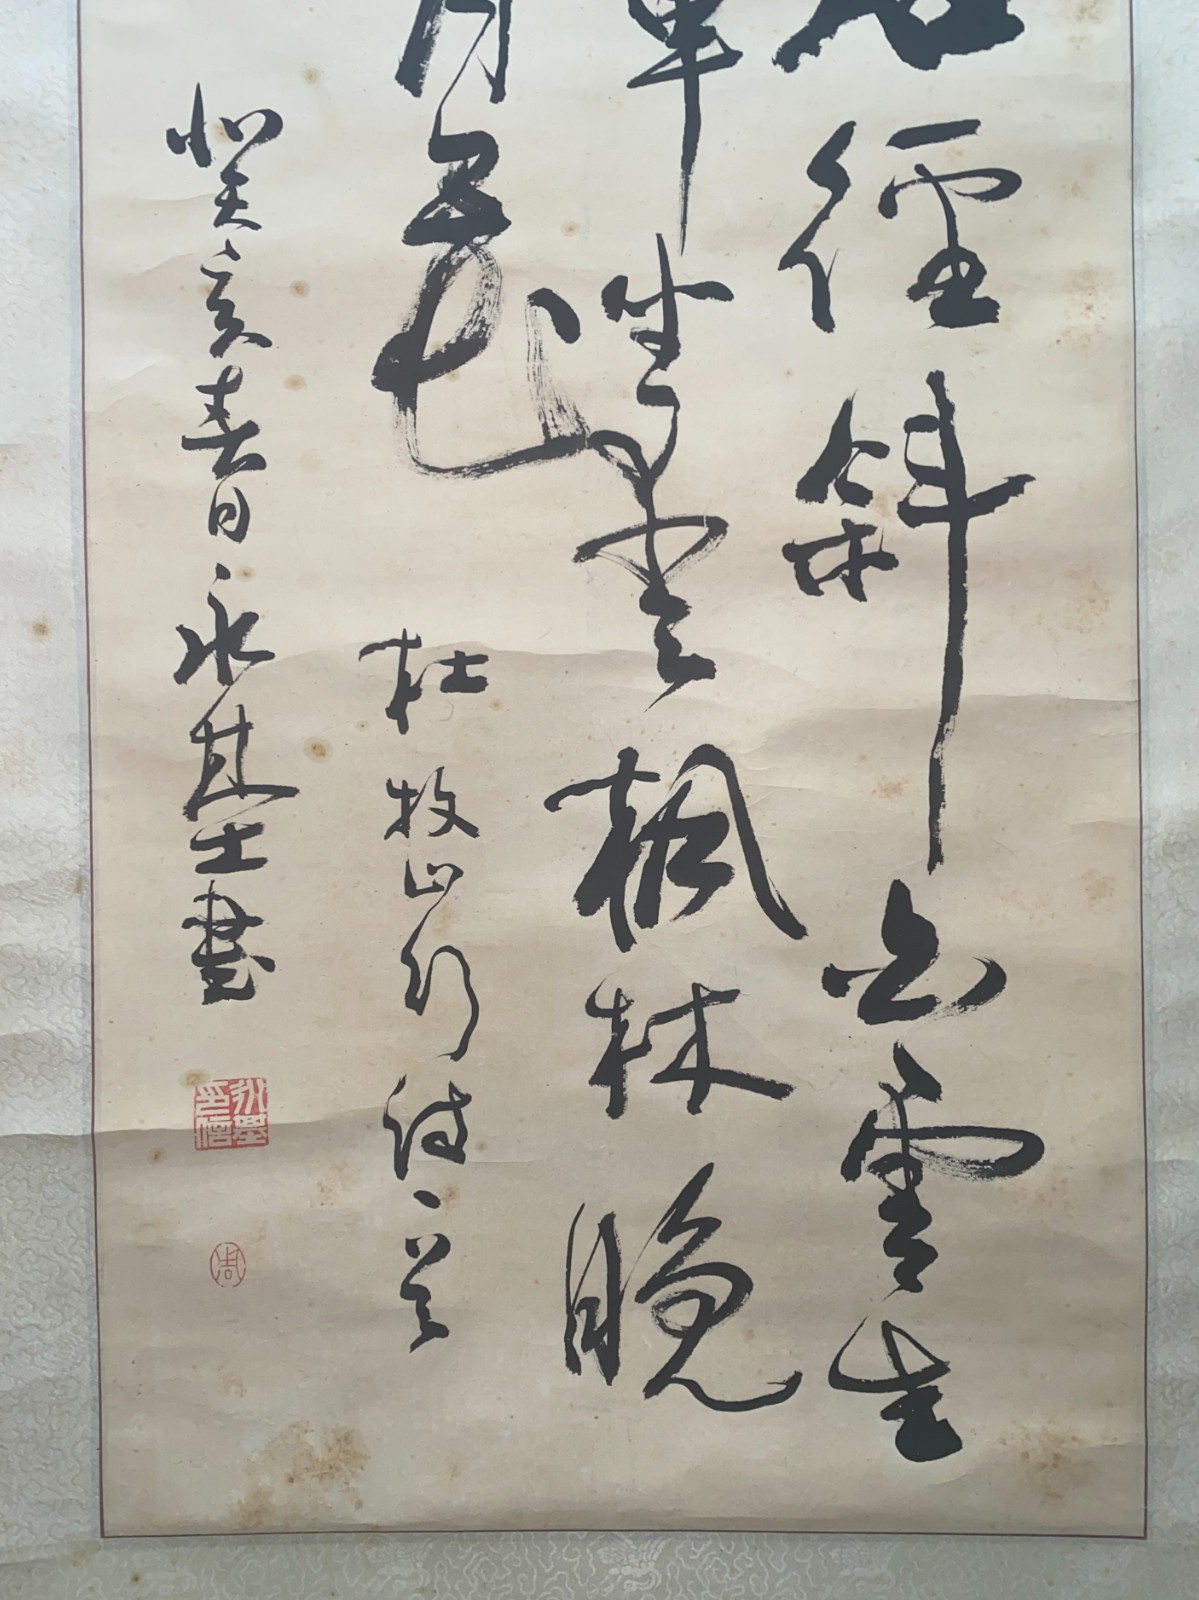 石徑斜白雲生
車坐愛楓林晚
月花
杜牧山行詩一首
癸亥春日永基書
永基印信
周